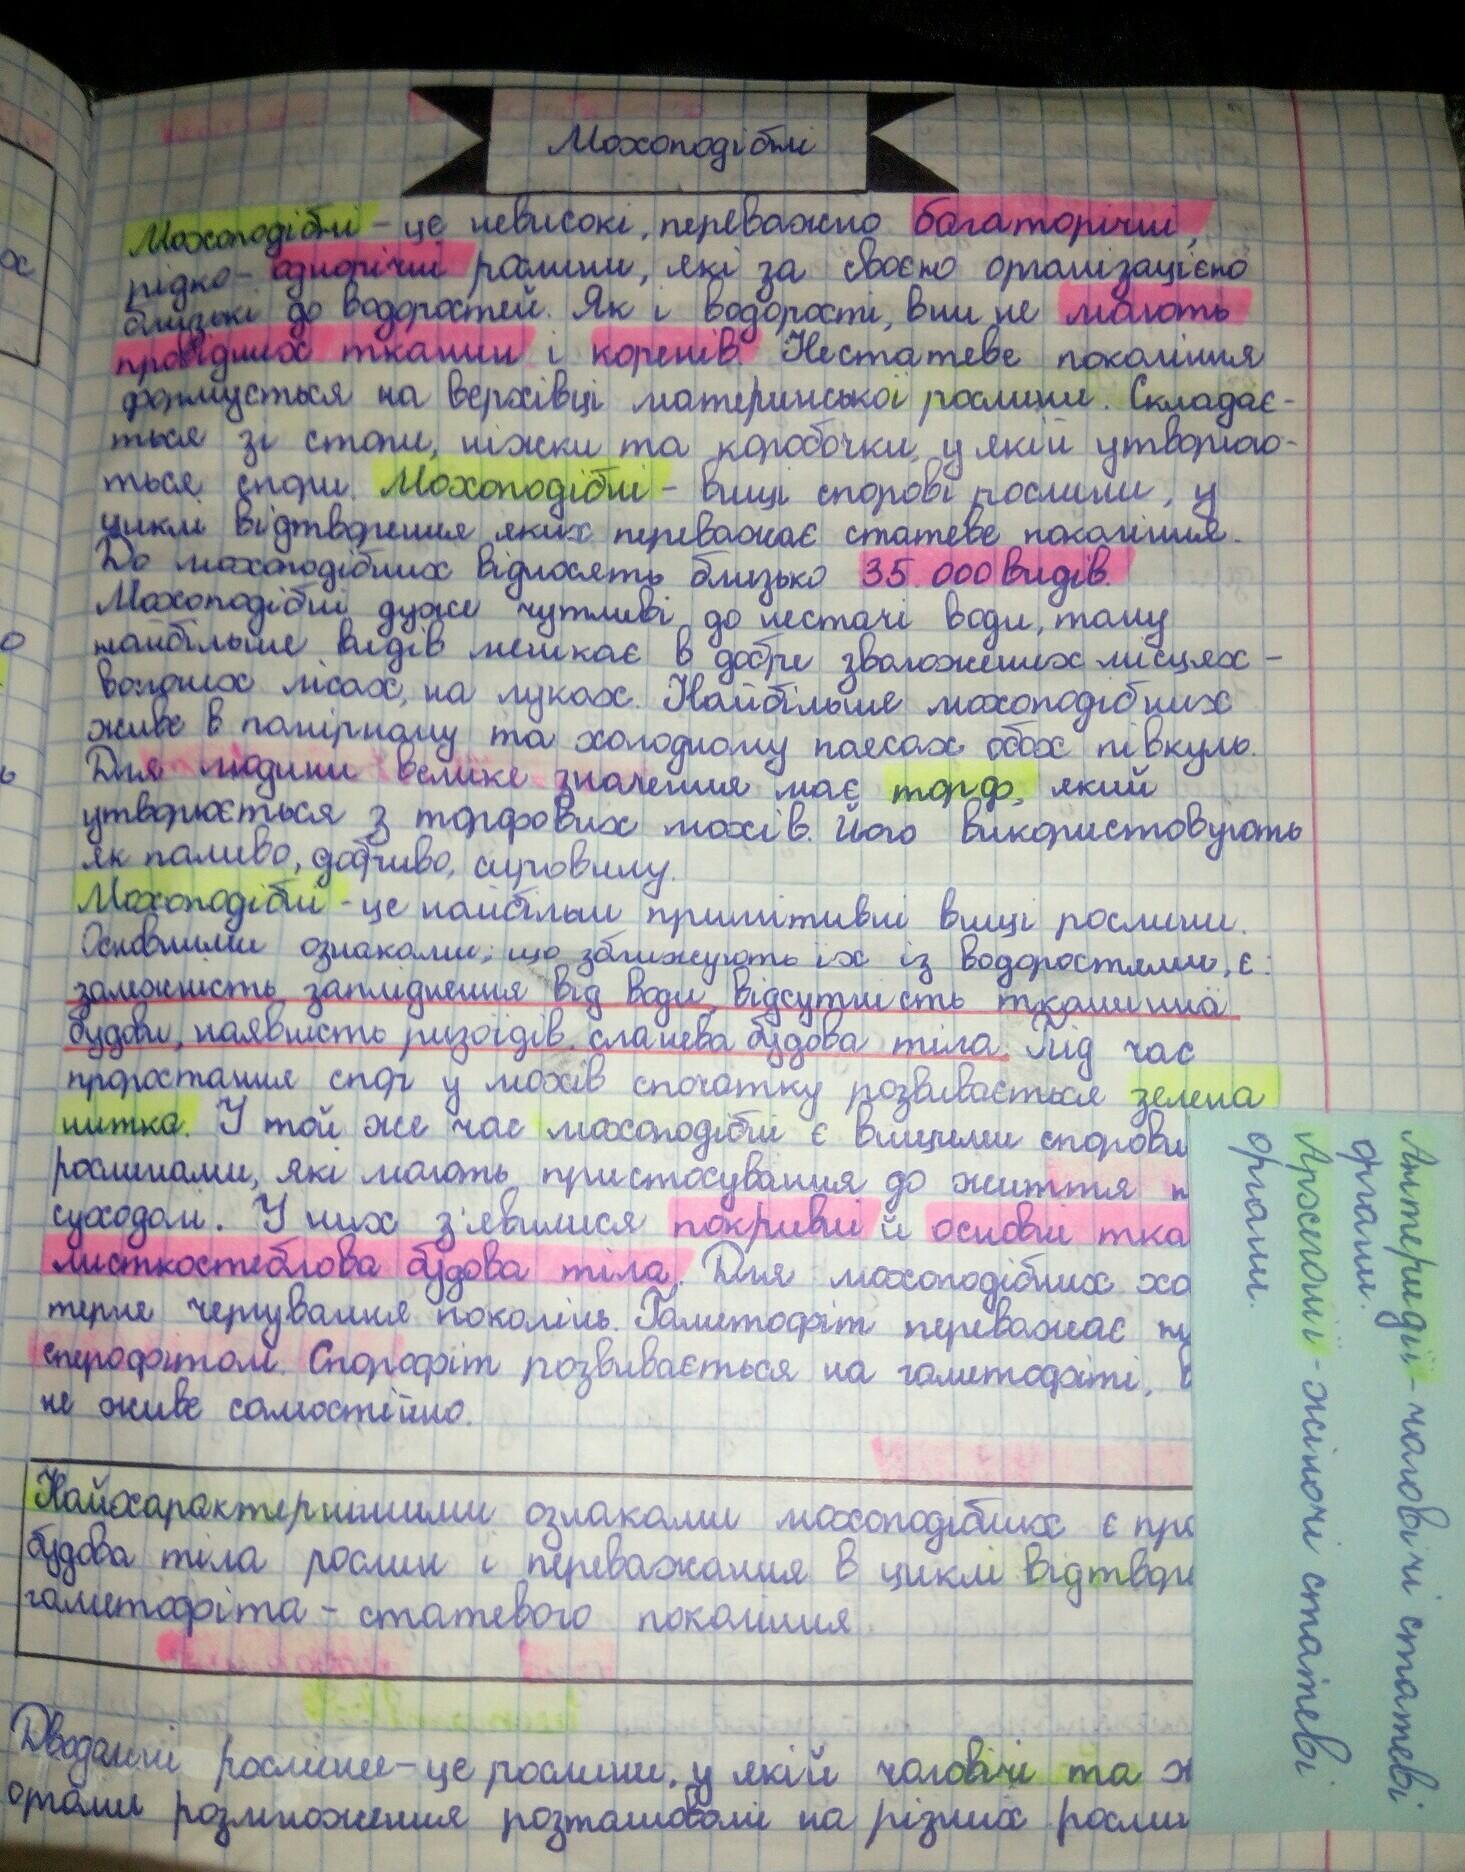 Мохоподібні
Мохоподібні - це невисокі, переважно багаторічні,
рідко - однорічні рослини, які за своєю організацією
близькі до водоростей. Як і водорості, вони не мають
провідних тканин і коренів. Нестатеве покоління
формується на верхівці материнської рослини. Складає-
ться зі стопи, ніжки та коробочки, у якій утворюю-
ться спори. Мохоподібні - вищі спорові рослини, у
циклі відтворення яких переважає статеве покоління.
До мохоподібних відносять близько 35.000 видів.
Мохоподібні дуже чутливі до нестачі води, тому
найбільше видів мешкає в добре зволожених місцях -
вологих лісах, на луках. Найбільше мохоподібних
живе в помірному та холодному поясах обох півкуль.
Для людини велике значення має торф, який
утворюється з торфових мохів. Його використовують
як паливо, добриво, сировину.
Мохоподібні - це найбільш примітивні вищі рослини.
Основними ознаками, що зближують їх із водоростями, є:
залежність запліднення від води, відсутність тканинної
будови, наявність ризоїдів, сланева будова тіла. Під час
проростання спор у мохів спочатку розвивається зелена
нитка. У той же час мохоподібні є вищими спорови
рослинами, які мають пристосування до життя н
суходолі. У них з'явилися покривні й основні тка
листкостеблова будова тіла. Для мохоподібних ха
терне чергування поколінь. Гаметофіт переважає
сперофітом. Спорофіт розвивається на гаметофіті, в
не живе самостійно.
Найхарактернішими ознаками мохоподібних є про
будова тіла рослин і переважання в циклі відтворе
гаметофіта - статевого покоління
Дводомні рослини - це рослини, у якій чоловічі та ж
органи розмноження розташовані на різних рослин
Антеридії - чоловічі статеві
органи.
Архегонії - жіночі статеві
органи.